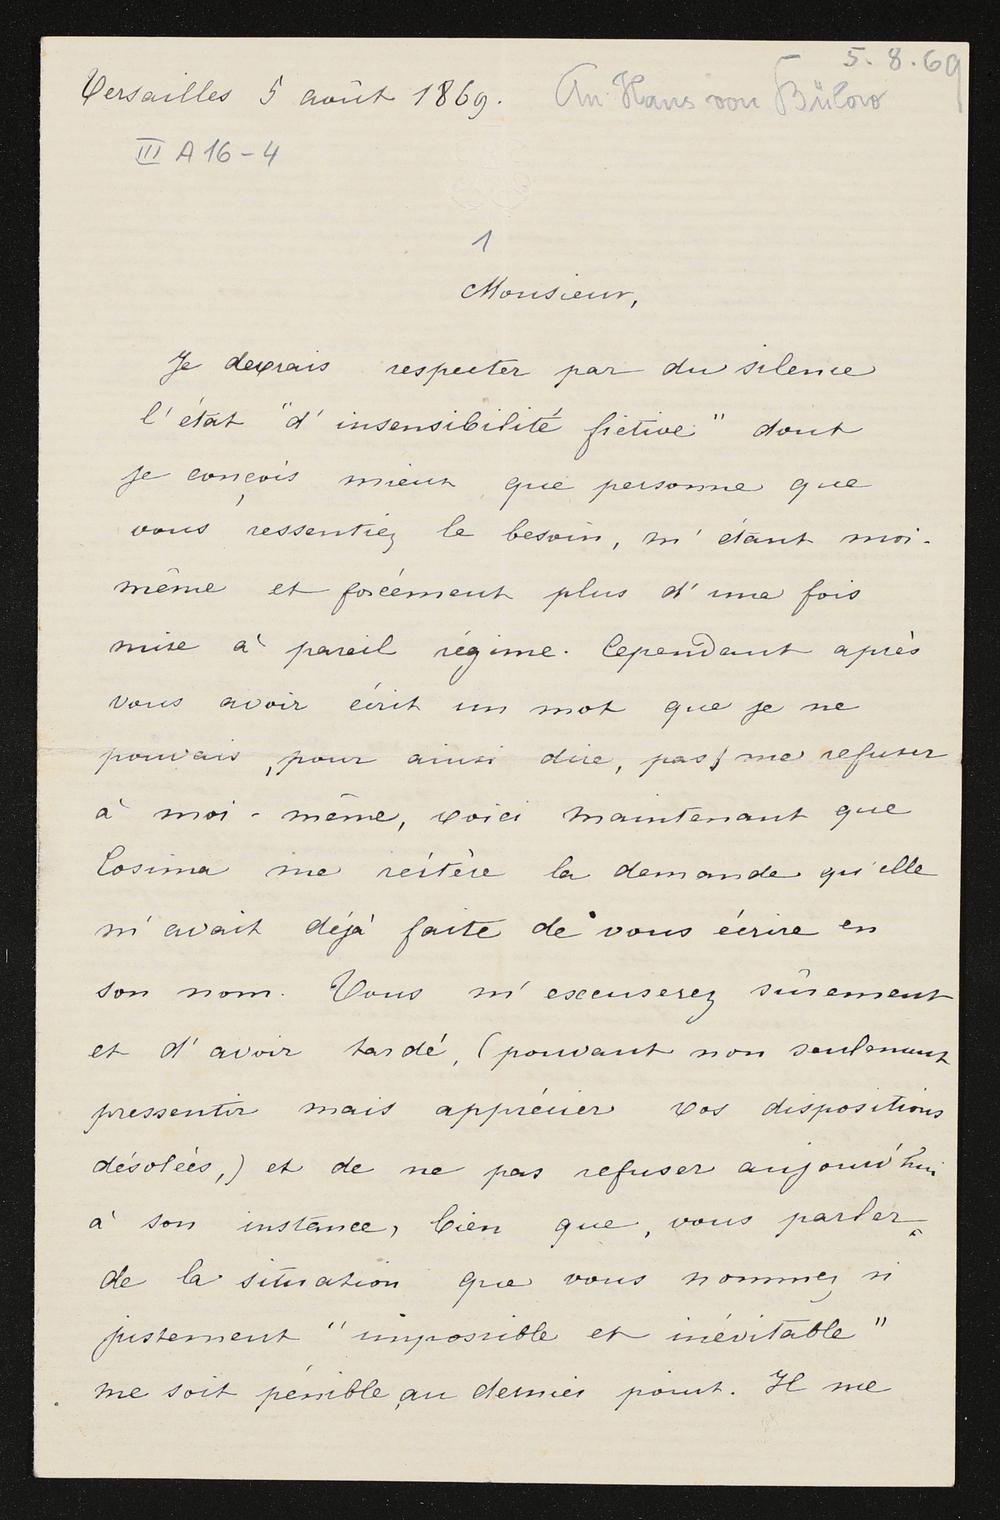 5. 8. 69
Versailles 5 août 1869. An Hans von Bülow
III A 16-4
1
Monsieur,
Je devrais respecter par du silence
l'état "d'insensibilité fictive" dont
je conçois mieux que personne que
vous ressentiez le besoin, m'étant moi-
même et forcément plus d'une fois
mise à pareil régime. Cependant après
vous avoir écrit un mot que je ne
pouvais, pour ainsi dire, pas me refuser
à moi-même, voici maintenant que
Cosima me réitère la demande qu'elle
m'avait déjà faite de vous écrire en
son nom. Vous m'excuserez sûrement
et d'avoir tardé, (pouvant non seulement
pressentir mais apprécier vos dispositions
désolées,) et de ne pas refuser aujourd'hui
à son instance, bien que, vous parler
de la situation que vous nommez si
justement "impossible et inévitable"
me soit pénible au dernier point. Il me